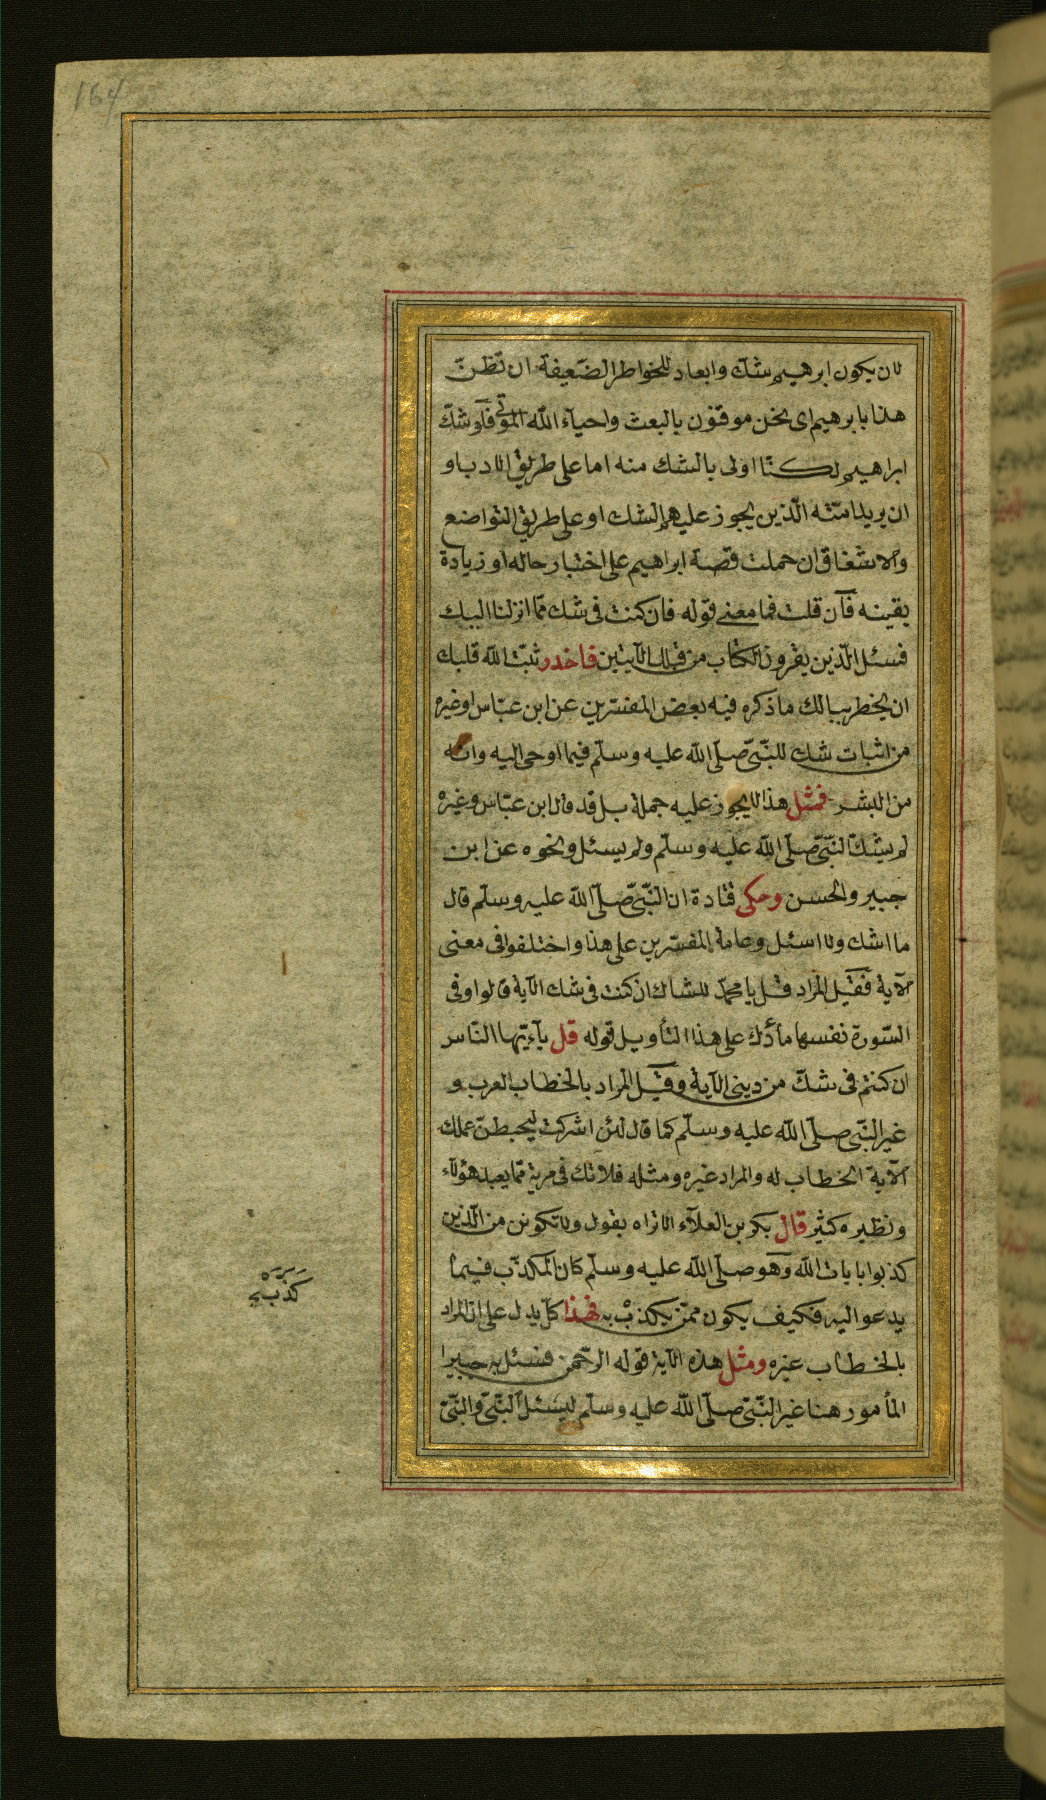 164
لان يكون ابرهيم شك وابعاد للخواطر الضّعيفة ان تظنّ
هذا بابرهيم اى نحن موقنون بالبعث واحيآء اللّه الموتى فلَو شكّ
ابراهيم لكنّا اولى بالشك منه اما على طريق الادب او
ان يريد امّته الّذين يجوز عليهم الشك او على طريق التواضع
والاشفاق ان حملت قصة ابراهيم على اختبار حاله او زيادة
يقينه فآن قلت فما معنى قوله فان كنت فى شك ممّا انزلنا اليك
فسئل الّذين يقرون الكتاب من قبلك الآيتين فاحذر ثبّت اللّه قلبك
ان يخطر ببالك ما ذكره فيه بعض المفسّرين عن ابن عبّاس او غيره
من اثبات شك للنّبىّ صلّى اللّه عليه وسلّم فيما اوحى اليه وانّه
من البشر فمثل هذا لا يجوز عليه جملة بل قد قال ابن عبّاس وغيره
لم يشكّ النّبىّ صلّى اللّه عليه وسلّم ولم يسئل ونحوه عن ابن
جبير والحسن وحكى قتادة ان النّبىّ صلّى اللّه عليه وسلّم قال
ما اشك ولا اسئل وعامة المفسّرين على هذا واختلفوا فى معنى
الآية فقيل المراد قل يا محمّد للشاك ان كنت فى شك الآية قالوا وفى
السّورة نفسها ما دّلك على هذا التأويل قوله قل يآءيّها النّاس
ان كنتم فى شكّ من دينى الآية وقيل المراد بالخطاب العرب و
غير النّبى صلّى اللّه عليه وسلّم كما قال لئن اشركت ليحبطنّ عملك
الآية الخطاب له والمراد غيره ومثله فلا تك فى مرية ممّا يعبد هؤلآء
ونظيره كثير قال بكر بن العلآء الا تراه يقول ولا تكونن من الّذين
كذبوا بايات اللّه وهو صلّى اللّه عليه وسلّم كان المكذّب فيما
يدعو اليه فكيف يكون ممّن يكذب به فهذا كلّ يدل على ان المراد
بالخطاب غيره ومثل هذه الآية قوله الرّحمن فسئل به خبيرا
المأمور هنا غير النّبىّ صلّى اللّه عليه وسلّم ليسئل النّبىّ والنّبىّ